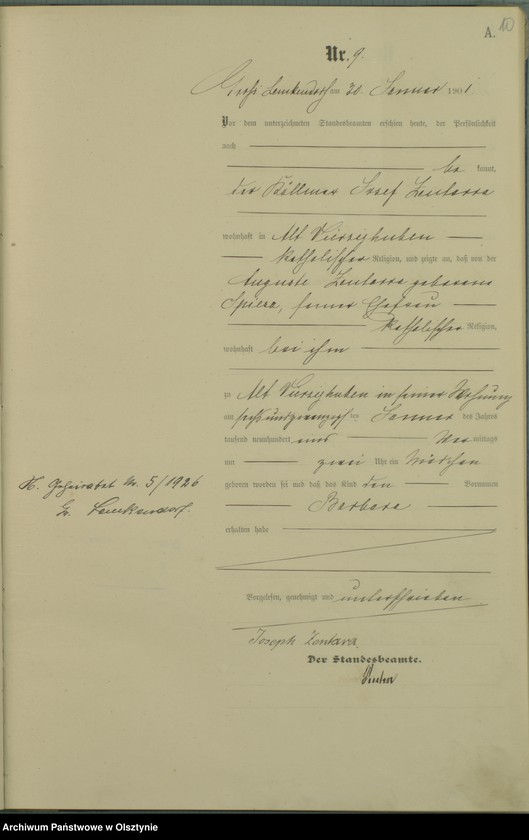 A. 10
Nr. 9.
Groß Lemkendorf am 30 Januar 1901.
Vor dem unterzeichneten Standesbeamten erschien heute, der Persönlichkeit
nach
be kannt,
der Köllmer Josef
wohnhaft in Alt Vierzighuben
katholischer Religion, und zeigte an, daß von der
Auguste geborene
seiner Ehefrau
katholischer Religion,
wohnhaft bei ihm
zu Alt Vierzighuben in seiner Wohnung
am sechsundzwanzigsten Januar des Jahres
tausend neunhundert eins Vor mittags
um zwei Uhr ein Mädchen
geboren worden sei und daß das Kind den Vornamen
Barbara
erhalten habe
Vorgelesen, genehmigt und unterschrieben
Joseph
Der Standesbeamte.
Nr. 5/1926
Lemkendorf.
Archiwum Państwowe w Olsztynie